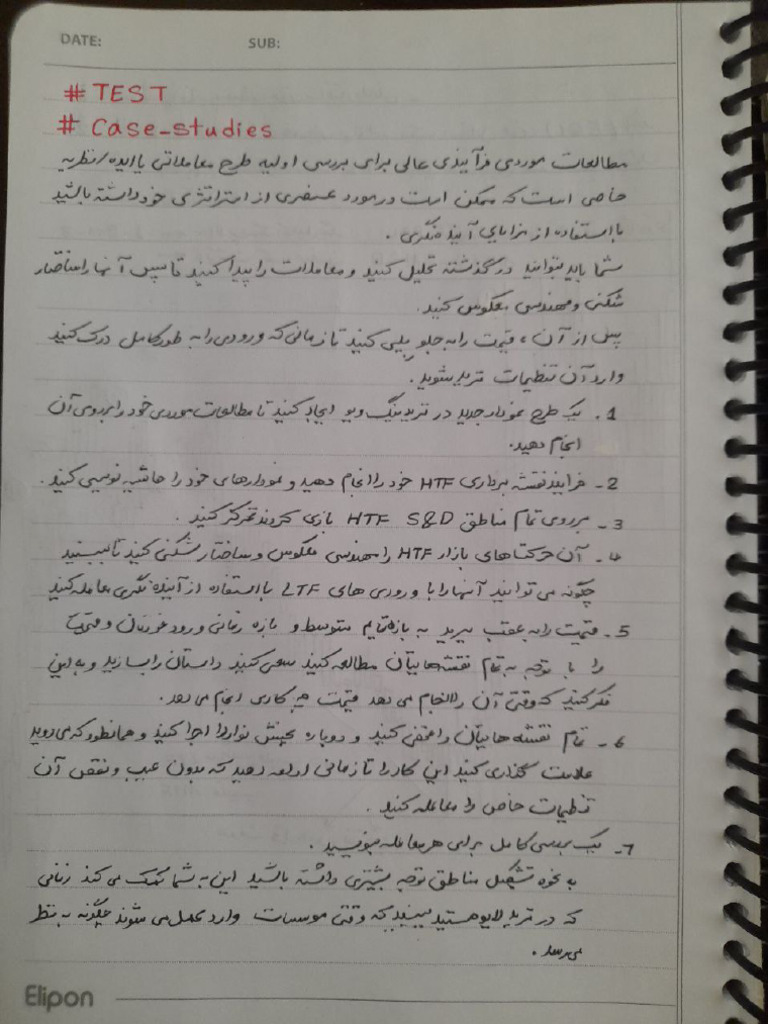 DATE: SUB:
# TEST
# Case-studies
مطالعات موردی فرآیندی عالی برای بررسی اولیه طرح معاملاتی یا ایده/نظریه
خاصی است که ممکن است در مورد عنصری از استراتژی خود داشته باشید
با استفاده از مزایای آینده نگری .
شما باید بتوانید در گذشته تحلیل کنید و معاملات را پیدا کنید تا سپس آنها را ساختار
شکنی و مهندسی معکوس کنید.
پس از آن، قیمت را به جلو پلی کنید تا زمانی که ورودی را به طور کامل درک کنید
وارد آن تنظیمات ترید بشوید.
1. یک طرح نمودار جدید در تریدینگ ویو ایجاد کنید تا مطالعات موردی خود را بر روی آن
انجام دهید.
2- فرایند نقشه برداری HTF خود را انجام دهید و نمودارهای خود را حاشیه نویسی کنید.
3- بر روی تمام مناطق HTF S&D بازی کروند تمرکز کنید.
4- آن حرکتهای بازار HTF را مهندسی معکوس و ساختار شکنی کنید تا ببینید
چگونه می توانید آنها را با ورودی های LTF با استفاده از آینده نگری معامله کنید
5- قیمت را به عقب ببرید به بازه تایم متوسط و بازه زمانی ورود خودتان و قیمت
را با توجه به تمام نقشه هایتان مطالعه کنید سعی کنید داستان را بسازید و به این
فکر کنید که وقتی آن را انجام می دهد قیمت چه کاری انجام می دهد.
6- تمام نقشه هایتان را مخفی کنید و دوباره پخش نوار را اجرا کنید و همانطور که می روید
علامت گذاری کنید این کار را تا زمانی ادامه دهید که بدون عیب و نقص آن
تنظیمات خاص را معامله کنید.
7- یک بررسی کامل برای هر معامله بنویسید.
به نحوه تشکیل مناطق توجه بیشتری داشته باشید این به شما کمک می کند زمانی
که در ترید لایو هستید ببینید که وقتی موسسات وارد عمل می شوند چگونه به نظر
می رسد.
Elipon